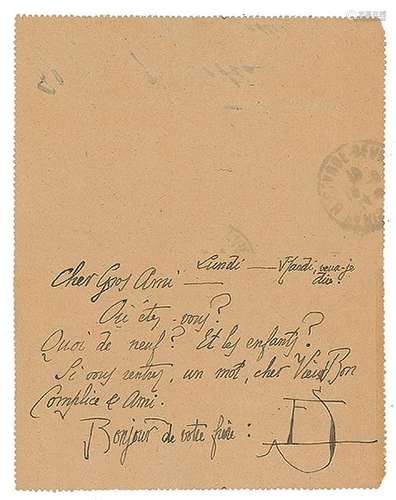 Lundi — Mardi, veux-je
dire!
Cher Gros Ami —
Où êtes-vous?
Quoi de neuf? Et les enfants?
Si vous rentrez, un mot, cher Vieux Bon
Complice & Ami.
Bonjour de votre frère:
ES